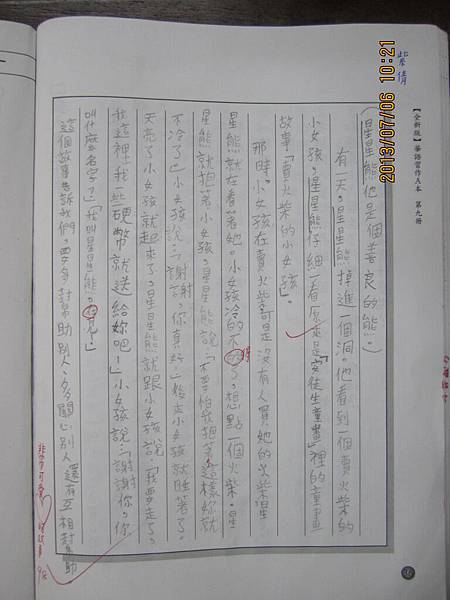 紫倩
【全新版】華語習作A本　第九冊
2013/07/06 10:21
(星星熊他是個善良的熊。)
有一天。星星熊掉進一個洞。他看到一個賣火柴的
小女孩。星星熊仔細看原來是「安徒生童畫」裡的童畫
故事「賣火柴的小女孩」。
那時。小女孩在賣火柴可是沒有人買她的火柴星
星熊就在看著她。小女孩冷的不了。想點一個火柴。星
星熊就抱著小女孩。星星熊說:「不要怕我抱著這樣妳就
不冷了」小女孩說:「謝謝。你真好!」後來小女孩就睡著了。
天亮了小女孩就起來了。星星熊就跟小女孩說:「我要走了。
我這裡我一些硬幣就送給妳吧!」小女孩說:「謝謝你。你
叫什麼名字?」「我叫星星熊。在見!」
這個故事告訴我們。要多幫助別人、多關心別人還有互相幫助
非常可愛
98